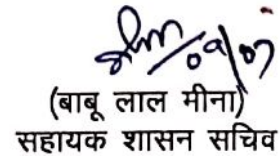 09/07
(बाबू लाल मीना)
सहायक शासन सचिव